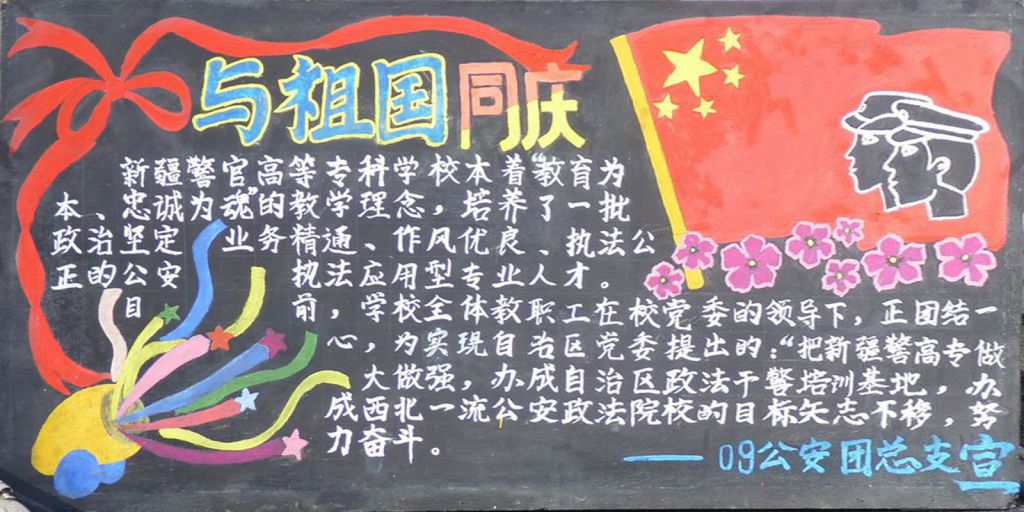 与祖国同庆
新疆警官高等专科学校本着"教育为
本、忠诚为魂"的教学理念，培养了一批
政治坚定 业务精通、作风优良、执法公
正的公安 执法应用型专业人才。
目 前，学校全体教职工在校党委的领导下，正团结一
心，为实现自治区党委提出的："把新疆警高专做
大做强，办成自治区政法干警培训基地，办
成西北一流公安政法院校的目标矢志不移，努
力奋斗。
——09公安团总支宣